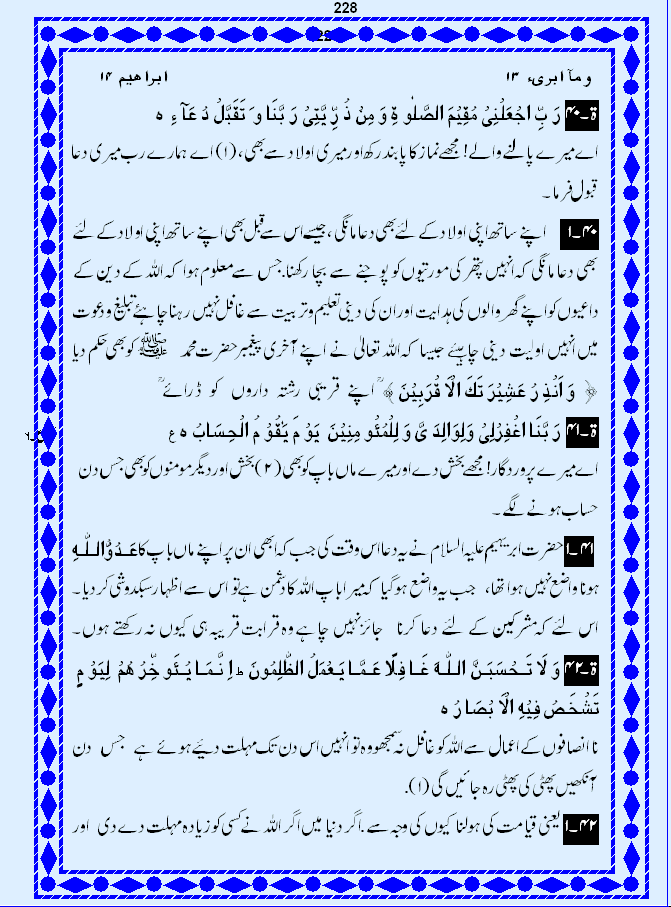 228
وما ابری، ۱۳ ابراھیم ۱۴
ۃ۔۴۰ رَبِّ اجْعَلْنِیْ مُقِیْمَ الصَّلٰوۃِ وَ مِنْ ذُرِّیَّتِیْ رَبَّنَا وَ تَقَبَّلْ دُعَآءِ ہ
اے میرے پالنے والے! مجھے نماز کا پابند رکھ اور میری اولاد سے بھی، (۱) اے ہمارے رب میری دعا
قبول فرما۔
۱۔۴۰ اپنے ساتھ اپنی اولاد کے لئے بھی دعا مانگی، جیسے اس سے قبل بھی اپنے ساتھ اپنی اولاد کے لئے
بھی دعا مانگی کہ انہیں پتھر کی مورتیوں کو پوجنے سے بچا رکھنا۔ جس سے معلوم ہوا کہ اللہ کے دین کے
داعیوں کو اپنے گھر والوں کی ہدایت اور ان کی دینی تعلیم و تربیت سے غافل نہیں رہنا چاہئے تبلیغ و دعوت
میں انہیں اولیت دینی چاہیئے جیسا کہ اللہ تعالیٰ نے اپنے آخری پیغمبر حضرت محمد ﷺ کو بھی حکم دیا
﴿ وَ اَنْذِرْ عَشِیْرَتَکَ الْاَقْرَبِیْنَ ﴾ "اپنے قریبی رشتہ داروں کو ڈرائے"
ۃ۔۴۱ رَبَّنَا اغْفِرْلِیْ وَلِوَالِدَیَّ وَ لِلْمُئْومِنِیْنَ یَوْمَ یَقُوْمُ الْحِسَابُ ہ ع
اے میرے پروردگار! مجھے بخش دے اور میرے ماں باپ کو بھی (۲) بخش اور دیگر مومنوں کو بھی جس دن
حساب ہونے لگے۔
۴۱۔۱ حضرت ابریہیم علیہ السلام نے یہ دعا اس وقت کی جب کہ ابھی ان پر اپنے ماں باپ کا عَدُوُّ اللّٰہِ
ہونا واضع نہیں ہوا تھا، جب یہ واضع ہو گیا کہ میرا باپ اللہ کا دشمن ہے تو اس سے اظہار سبکدوشی کر دیا۔
اس لئے کہ مشرکین کے لئے دعا کرنا جائز نہیں چاہے وہ قرابت قریبہ ہی کیوں نہ رکھتے ہوں۔
ۃ۔۴۲ وَ لَا تَحْسَبَنَّ اللّٰہَ غَافِلًا عَمَّا یَعْمَلُ الظّٰلِمُونَ ط اِنَّمَا یُئَوخِّرُ ھُمْ لِیَوْمٍ
تَشْخَصُ فِیْہِ الْاَبْصَارُ ہ
نا انصافوں کے اعمال سے اللہ کو غافل نہ سمجھو وہ تو انہیں اس دن تک مہلت دیئے ہوئے ہے جس دن
آنکھیں پھٹی کی پھٹی رہ جائیں گی (۱)۔
۴۲۔۱ یعنی قیامت کی ہولناکیوں کی وجہ سے۔ اگر دنیا میں اگر اللہ نے کسی کو زیادہ مہلت دے دی اور